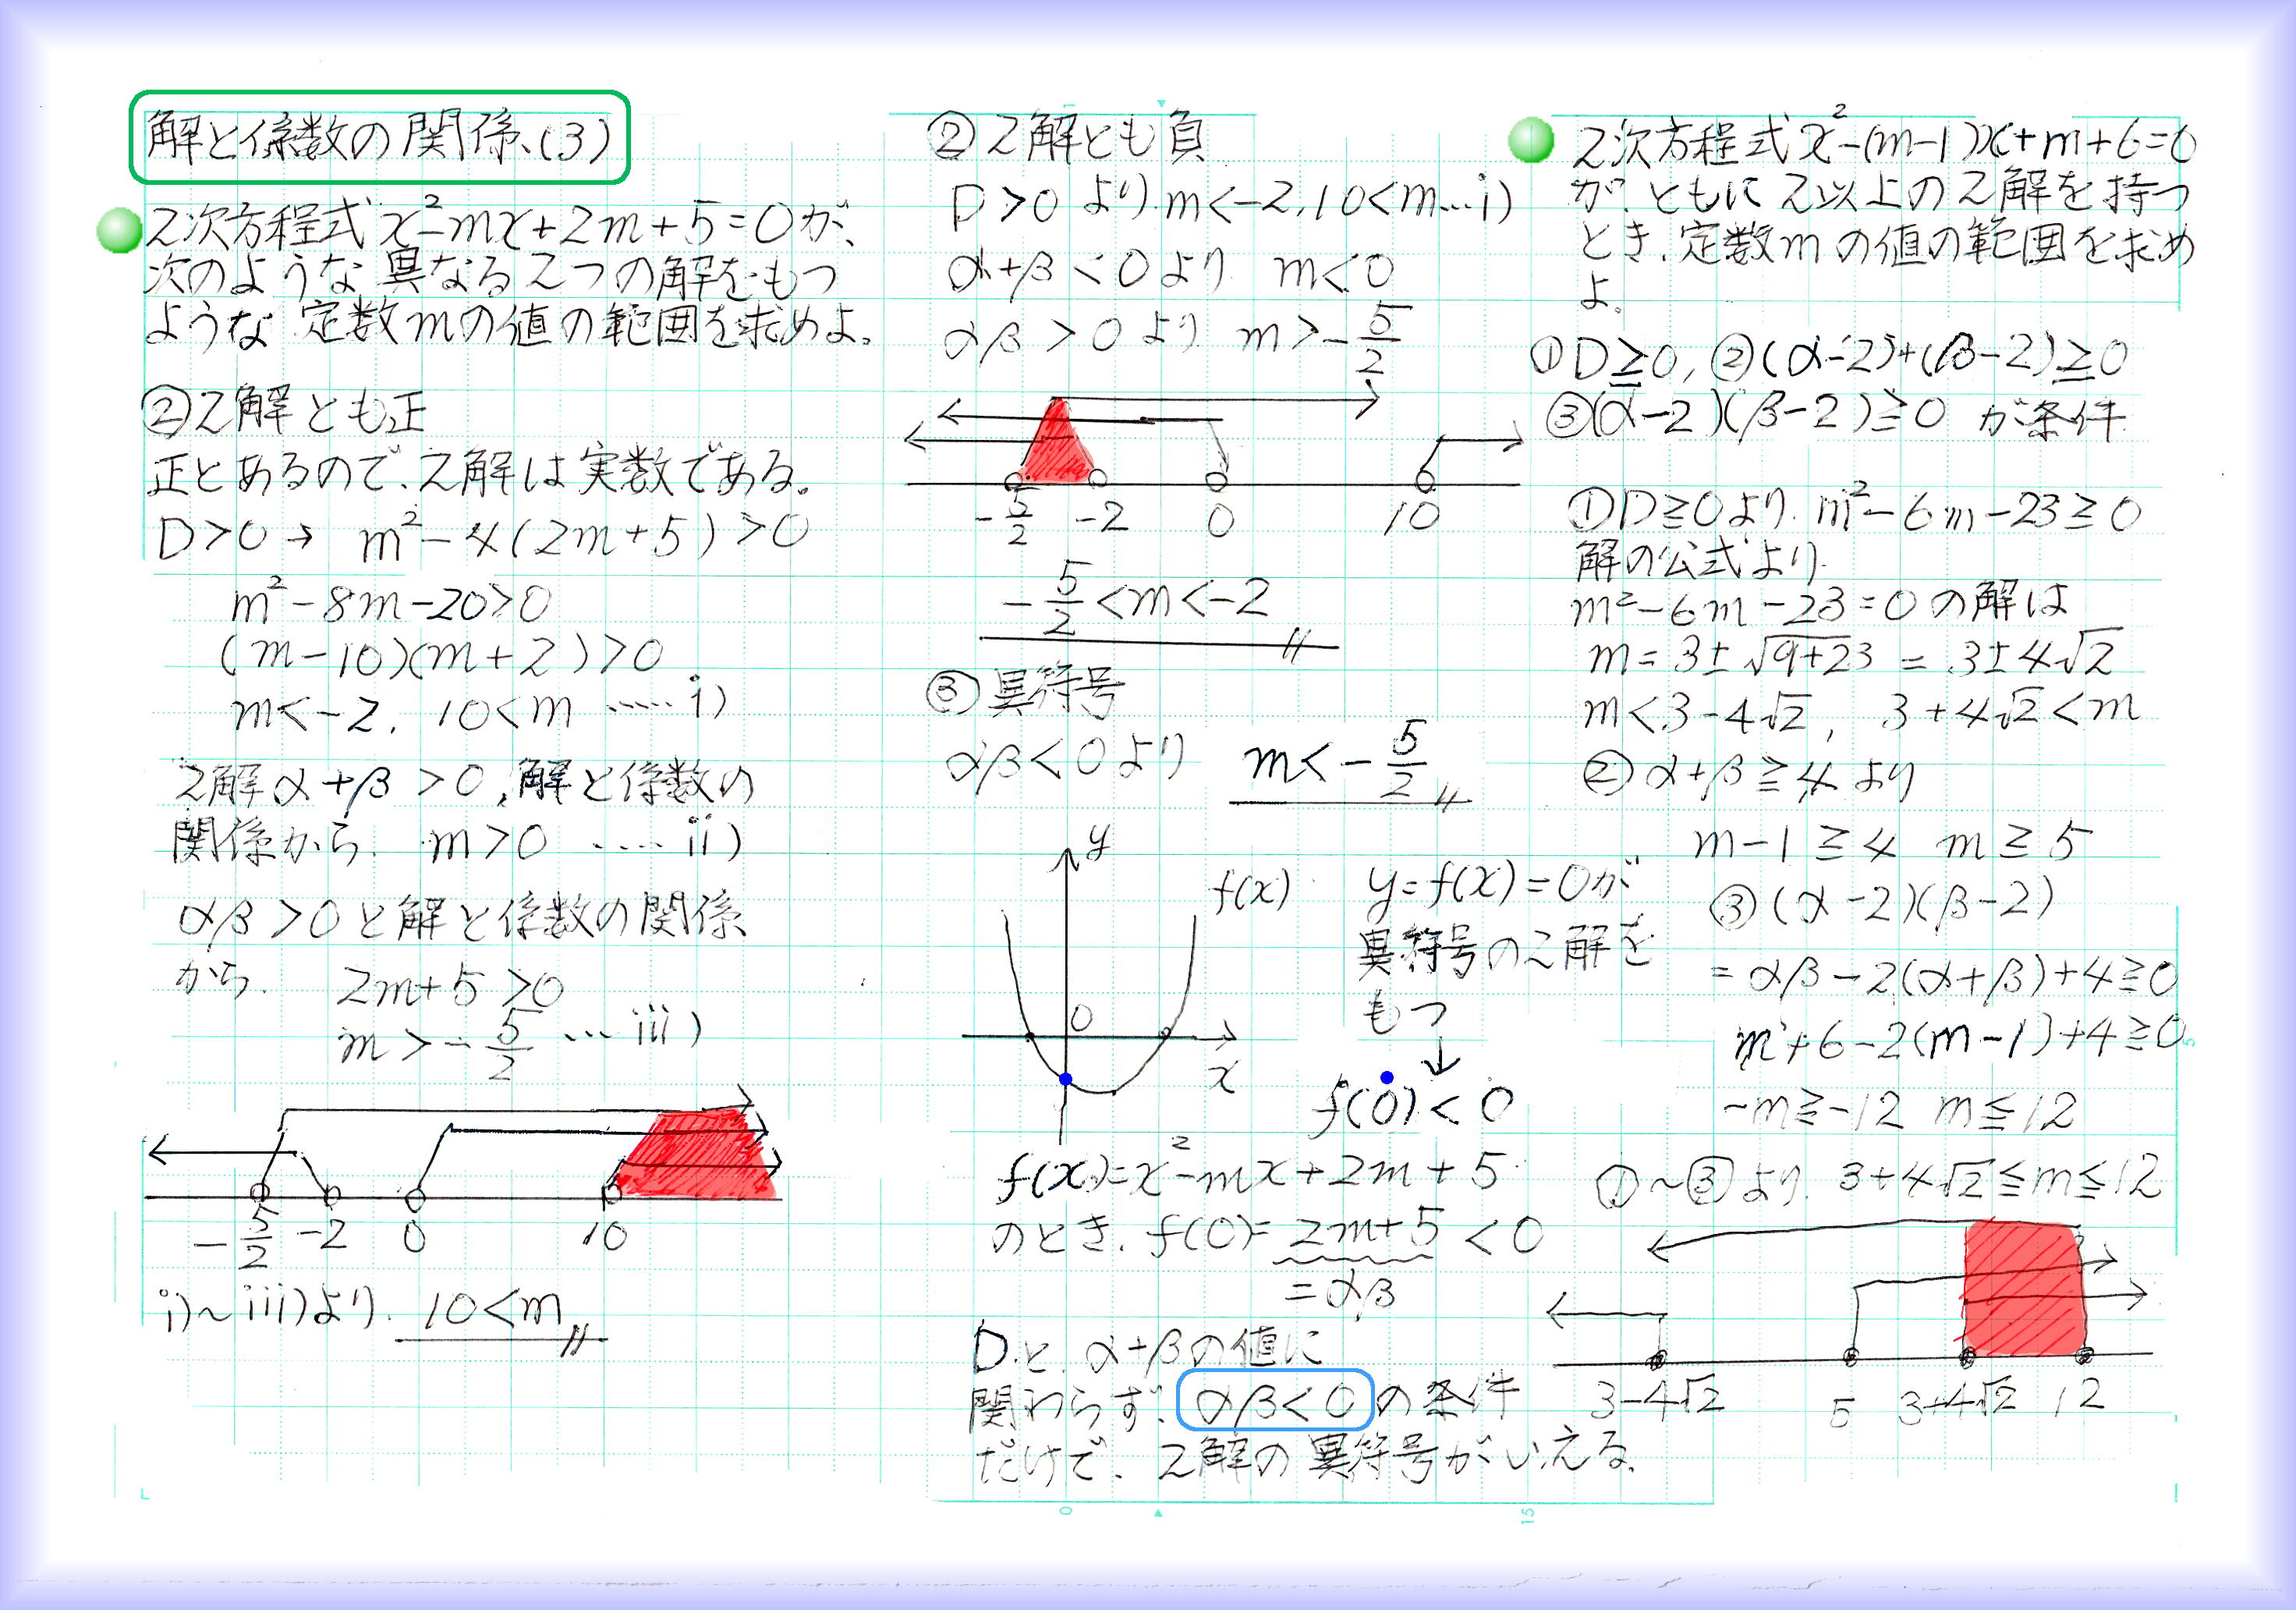 解と係数の関係(3)
2次方程式x²-mx+2m+5=0が、
次のような異なる2つの解をもつ
ような定数mの値の範囲を求めよ。
②2解とも正
正とあるので、2解は実数である。
D>0 → m²-4(2m+5)>0
m²-8m-20>0
(m-10)(m+2)>0
m<-2, 10<m ……i)
2解α+β>0,解と係数の
関係から、m>0 ……ii)
αβ>0と解と係数の関係
から、 2m+5>0
m>-5/2 …iii)
-5/2 -2 0 10
i)~iii)より、10<m
②2解とも負
D>0 より、m<-2,10<m…i)
α+β<0より m<0
αβ>0より m>-5/2
-5/2 -2 0 10
-5/2<m<-2
③異符号
αβ<0より m<-5/2
y
f(x)
0
x
y=f(x)=0が
異符号の2解を
もつ
↓
f(0)<0
f(x)=x²-mx+2m+5
のとき、f(0)=2m+5<0
=αβ
Dと、α+βの値に
関わらず、αβ<0の条件
だけで、2解の異符号がいえる。
0
15
2次方程式x²-(m-1)x+m+6=0
が、ともに2以上の2解を持つ
とき、定数mの値の範囲を求め
よ。
①D≧0,②(α-2)+(β-2)≧0
③(α-2)(β-2)≧0 が条件
①D≧0より、m²-6m-23≧0
解の公式より
m²-6m-23=0の解は
m=3±√9+23=3±4√2
m<3-4√2, 3+4√2<m
②α+β≧4より
m-1≧4 m≧5
③(α-2)(β-2)
=αβ-2(α+β)+4≧0
m+6-2(m-1)+4≧0
-m≧-12 m≦12
①~③より、3+4√2≦m≦12
3-4√2 5 3+4√2 12
5